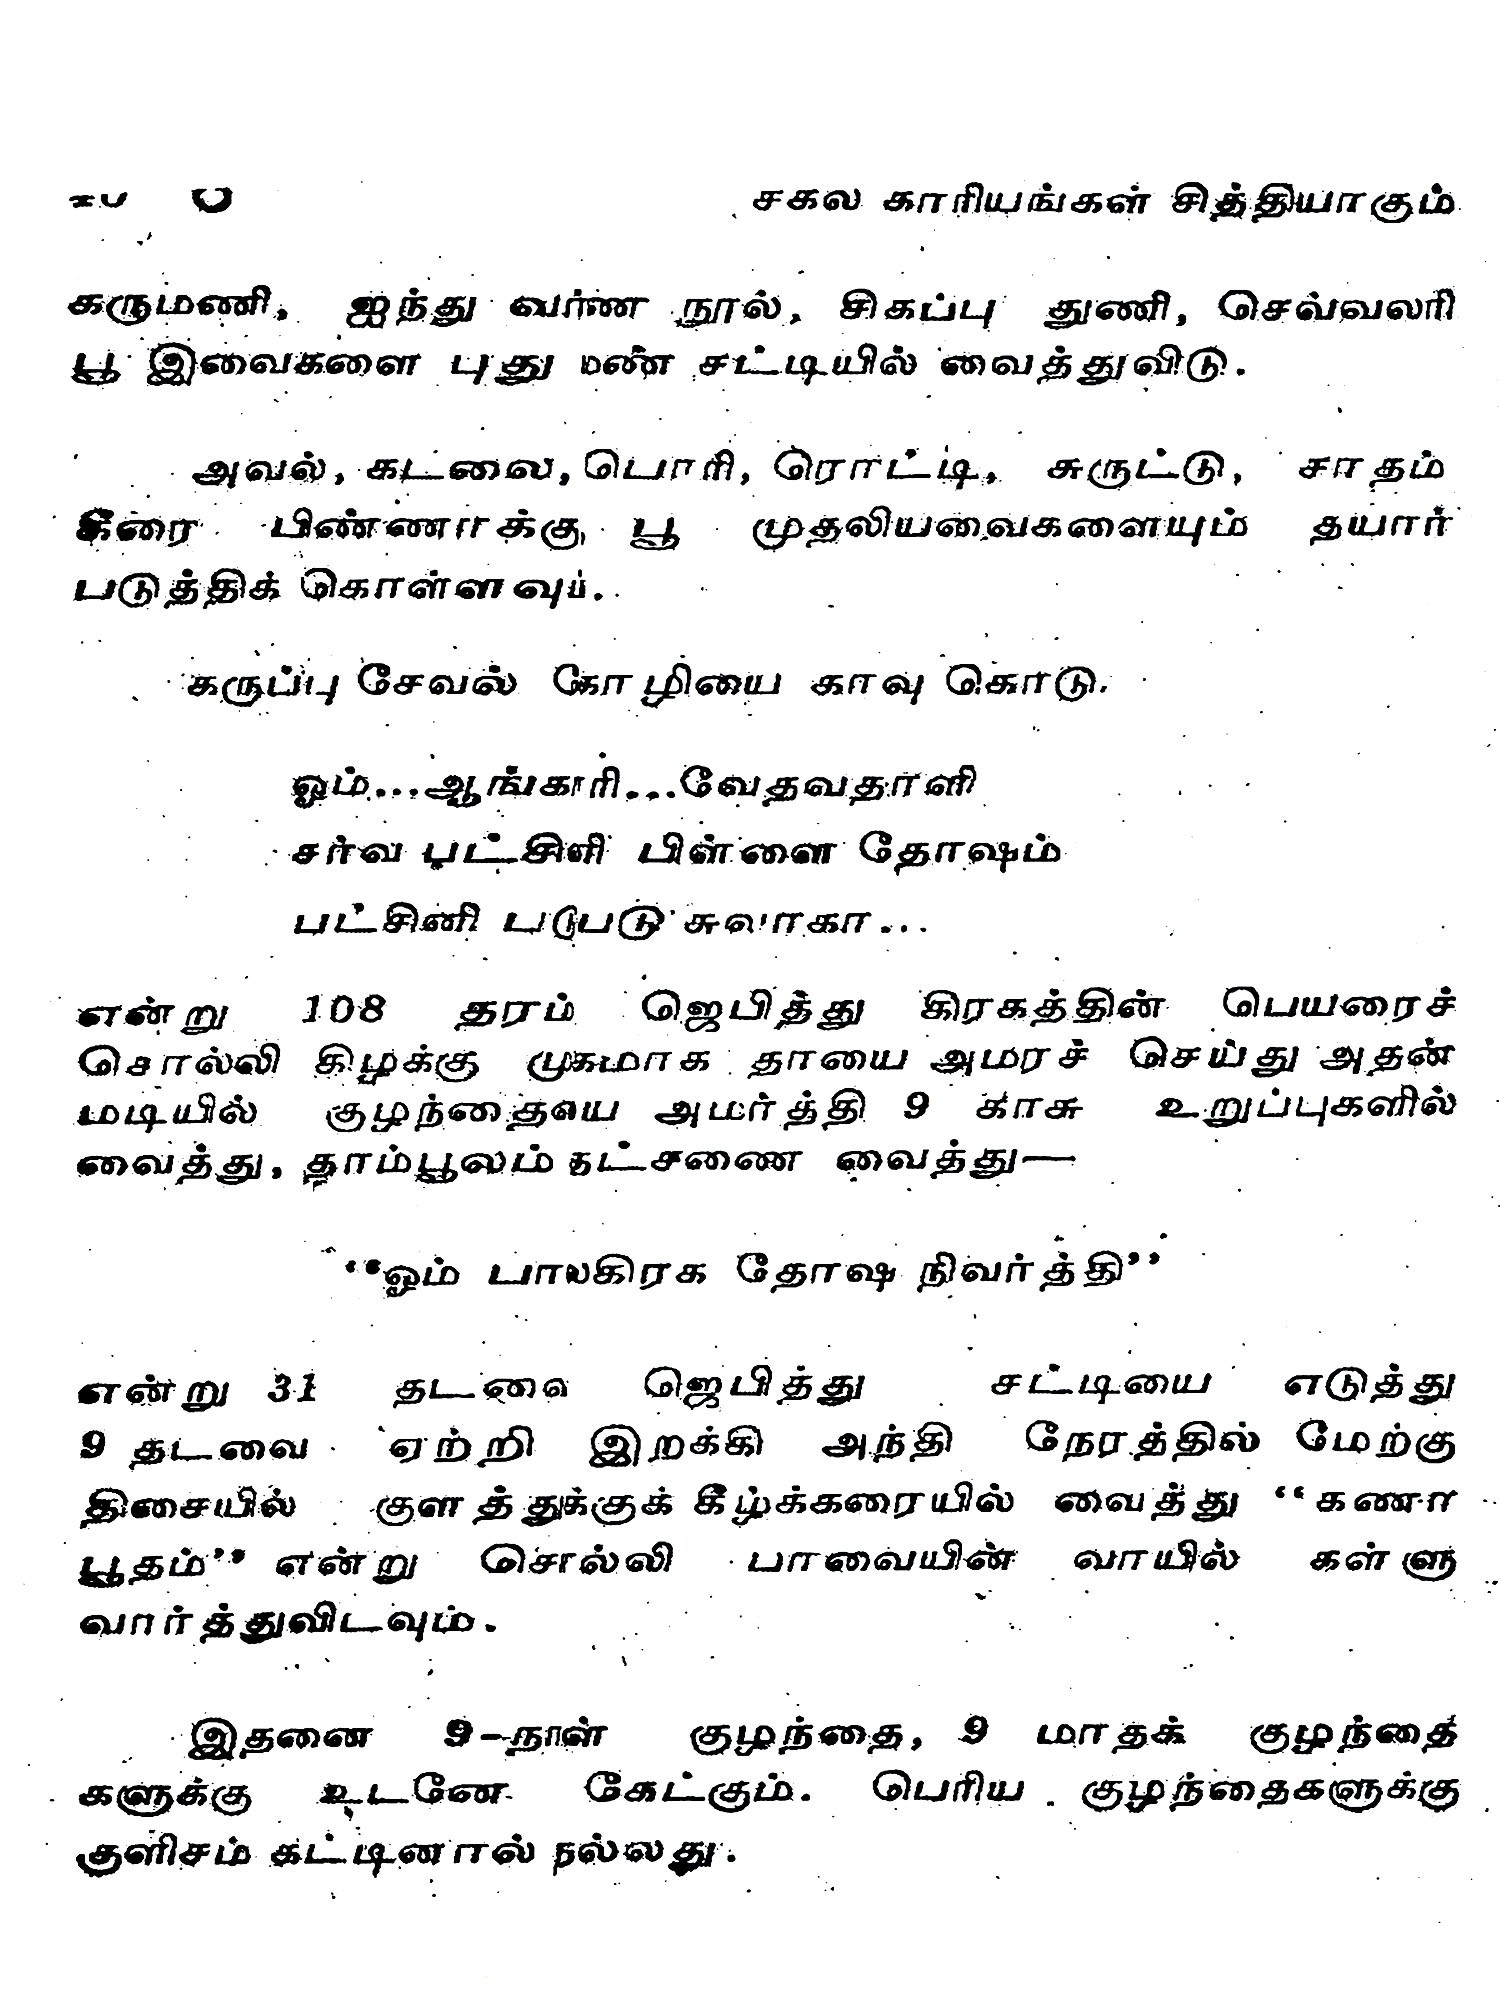 சகல காரியங்கள் சித்தியாகும்
கருமணி, ஐந்து வர்ண நூல், சிகப்பு துணி, செவ்வலரி
பூ இவைகளை புது மண் சட்டியில் வைத்துவிடு.
அவல், கடலை, பொரி, ரொட்டி, சுருட்டு, சாதம்
கீரை பிண்ணாக்கு, பூ முதலியவைகளையும் தயார்
படுத்திக் கொள்ளவும்.
கருப்பு சேவல் கோழியை காவு கொடு.
ஓம்...ஆங்காரி...வேதவதாளி
சர்வ பட்சிளி பிள்ளை தோஷம்
பட்சினி படுபடு சுவாகா...
என்று 108 தரம் ஜெபித்து கிரகத்தின் பெயரைச்
சொல்லி கிழக்கு முகமாக தாயை அமரச் செய்து அதன்
மடியில் குழந்தையை அமர்த்தி 9 காசு உறுப்புகளில்
வைத்து, தாம்பூலம் தட்சணை வைத்து—
“ஓம் பாலகிரக தோஷ நிவர்த்தி”
என்று 31 தடவை ஜெபித்து சட்டியை எடுத்து
9 தடவை ஏற்றி இறக்கி அந்தி நேரத்தில் மேற்கு
திசையில் குளத்துக்குக் கீழ்க்கரையில் வைத்து “கணா
பூதம்” என்று சொல்லி பாவையின் வாயில் கள்ளு
வார்த்துவிடவும்.
இதனை 9-நாள் குழந்தை, 9 மாதக் குழந்தை
களுக்கு உடனே கேட்கும். பெரிய குழந்தைகளுக்கு
குளிசம் கட்டினால் நல்லது.